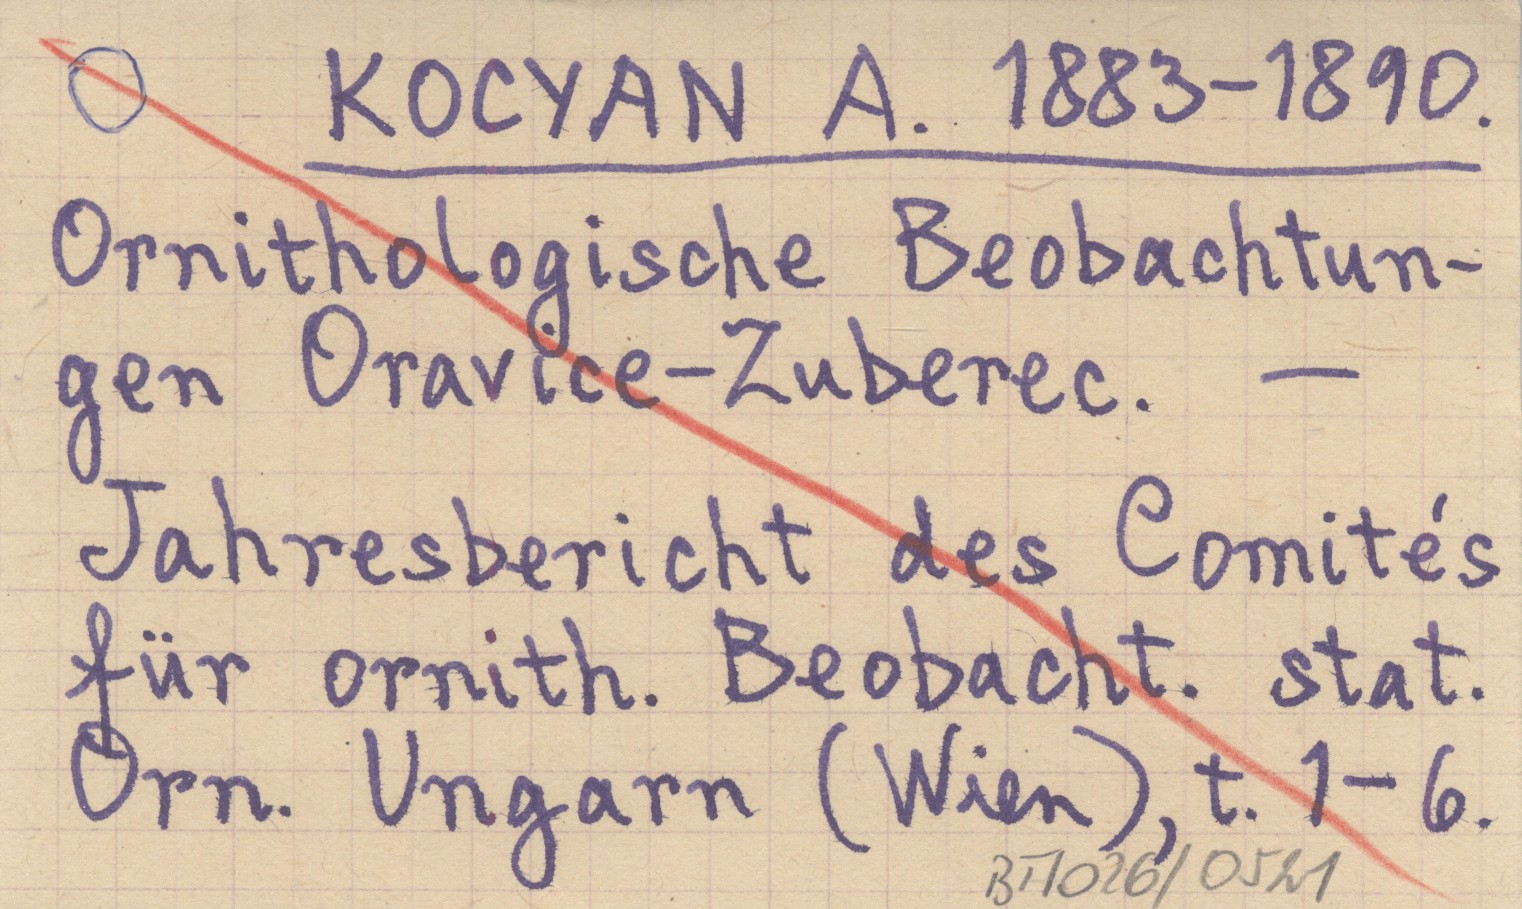 KOCYAN A. 1883-1890.
Ornithologische Beobachtun-
gen Oravice-Zuberec. —
Jahresbericht des Comités
für ornith. Beobacht. stat.
Orn. Ungarn (Wien), t. 1-6.
BП026/0521